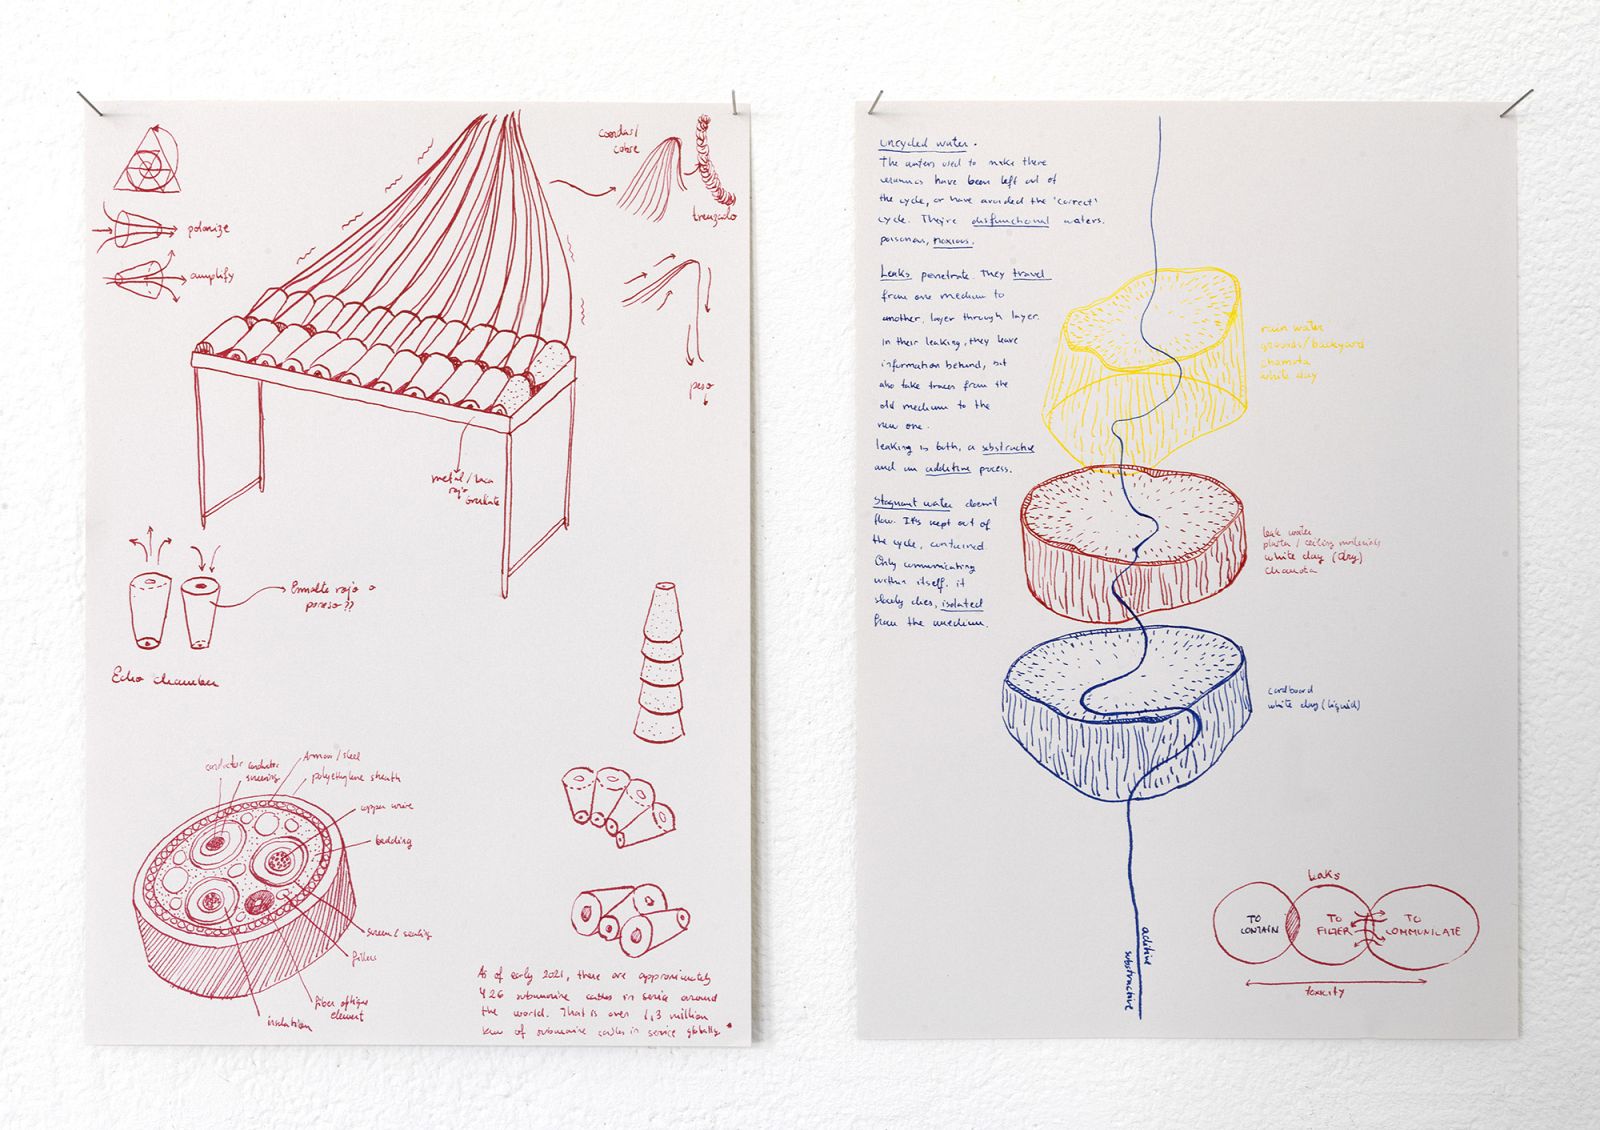 cuerdas/
cobre
trenzado
polarize
amplify
peso
metal/laca
rojo
brillante
Esmalte rojo o
poroso??
Echo chamber
conductor
conductor
screening
Armour/steel
polyethylene sheath
copper wire
bedding
screen/sealing
fillers
fiber optique
element
insulation
As of early 2021, there are approximately
426 submarine cables in service around
the world. That is over 1,3 million
km of submarine cables in service globally.
uncycled water.
The waters used to make these
ceramics have been left out of
the cycle, or have avoided the 'correct'
cycle. They're disfunctional waters.
poisonous, noxious.
Leaks penetrate. They travel
from one medium to
another, layer through layer.
in their leaking, they leave
information behind, but
also take traces from the
old medium to the
new one.
leaking is both, a substractive
and an additive process.
Stagnant water doesn't
flow. It's kept out of
the cycle, contained.
Only communicating
within itself. it
slowly dies, isolated
from the medium.
rain water
grounds/backyard
chamota
white clay
leak water
plaster/ceiling materials
white clay (dry)
chamota
cardboard
white clay (liquid)
aditive
substractive
Leaks
TO
CONTAIN
TO
FILTER
TO
COMMUNICATE
toxicity